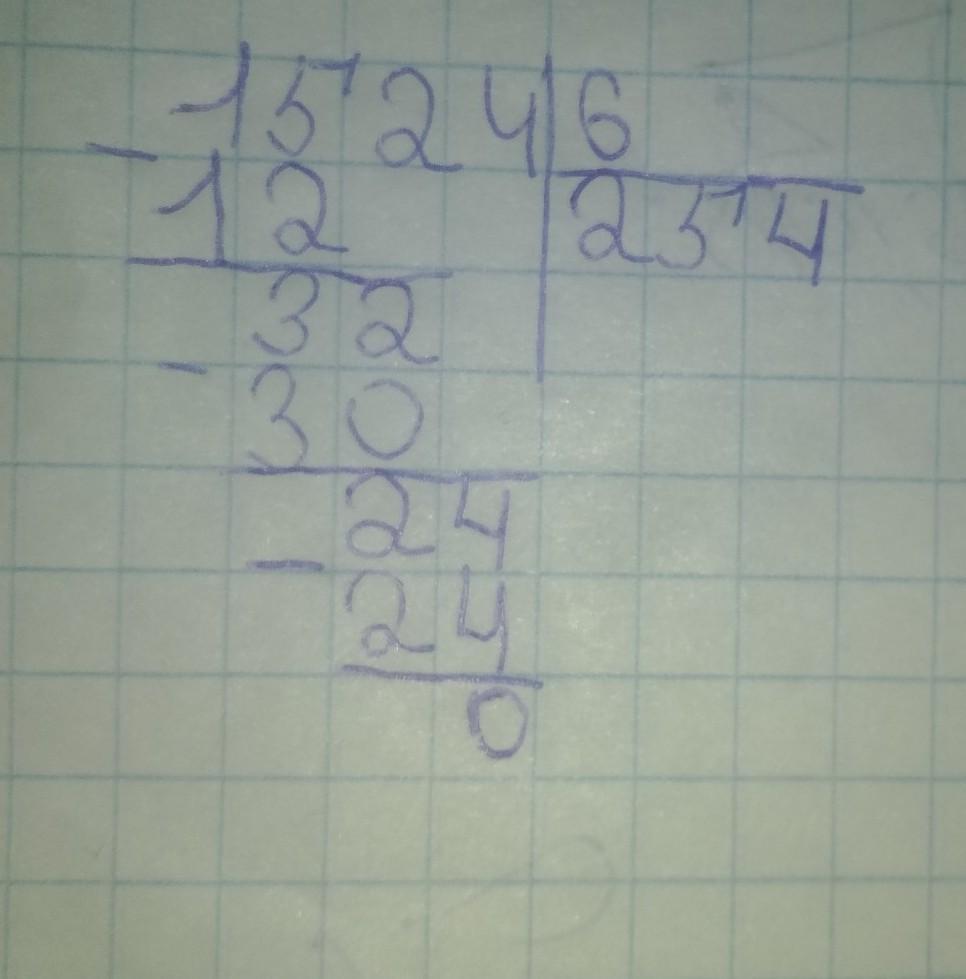 1524 6
- 12 254
32
- 30
24
- 24
0